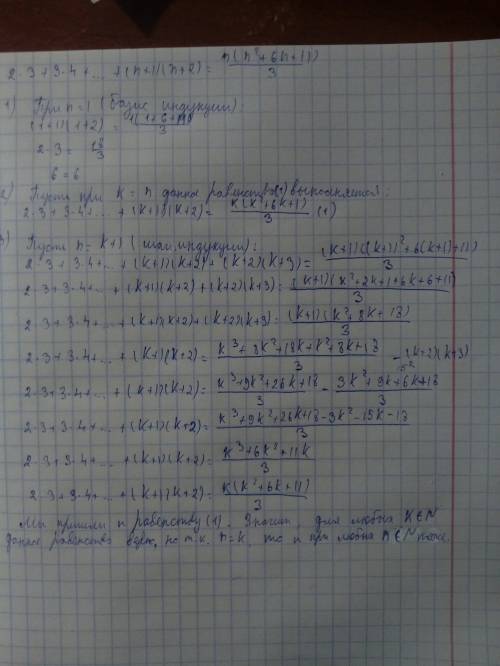 2·3+3·4+... +(n+1)(n+2)= n(n²+6n+11)/3
1) При n=1 (базис индукции):
(1+1)(1+2) = 1(1+6+11)/3
2·3 = 18/3
6=6
2) Пусть при k=n данное равенство выполняется:
2·3+3·4+... +(k+1)(k+2)= k(k²+6k+11)/3 (1)
3) Пусть n=k+1 (шаг индукции):
2·3+3·4+... +(k+1)(k+2)+(k+2)(k+3)= (k+1)((k+1)²+6(k+1)+11)/3
2·3+3·4+... +(k+1)(k+2)+(k+2)(k+3)= (k+1)(k²+2k+1+6k+6+11)/3
2·3+3·4+... +(k+1)(k+2)+(k+2)(k+3)= (k+1)(k²+8k+18)/3
2·3+3·4+... +(k+1)(k+2)= k³+8k²+18k+k²+8k+18/3 -(k+2)(k+3)
2·3+3·4+... +(k+1)(k+2)= k³+9k²+26k+18/3 - 3k²+9k+6k+18/3
2·3+3·4+... +(k+1)(k+2)= k³+9k²+26k+18-3k²-15k-18/3
2·3+3·4+... +(k+1)(k+2)= k³+6k²+11k/3
2·3+3·4+... +(k+1)(k+2)= k(k²+6k+11)/3
Мы пришли к равенству (1). Значит, для любых k∈N
данное равенство верно, но т.к. n=k, то и при любых n∈N тоже.